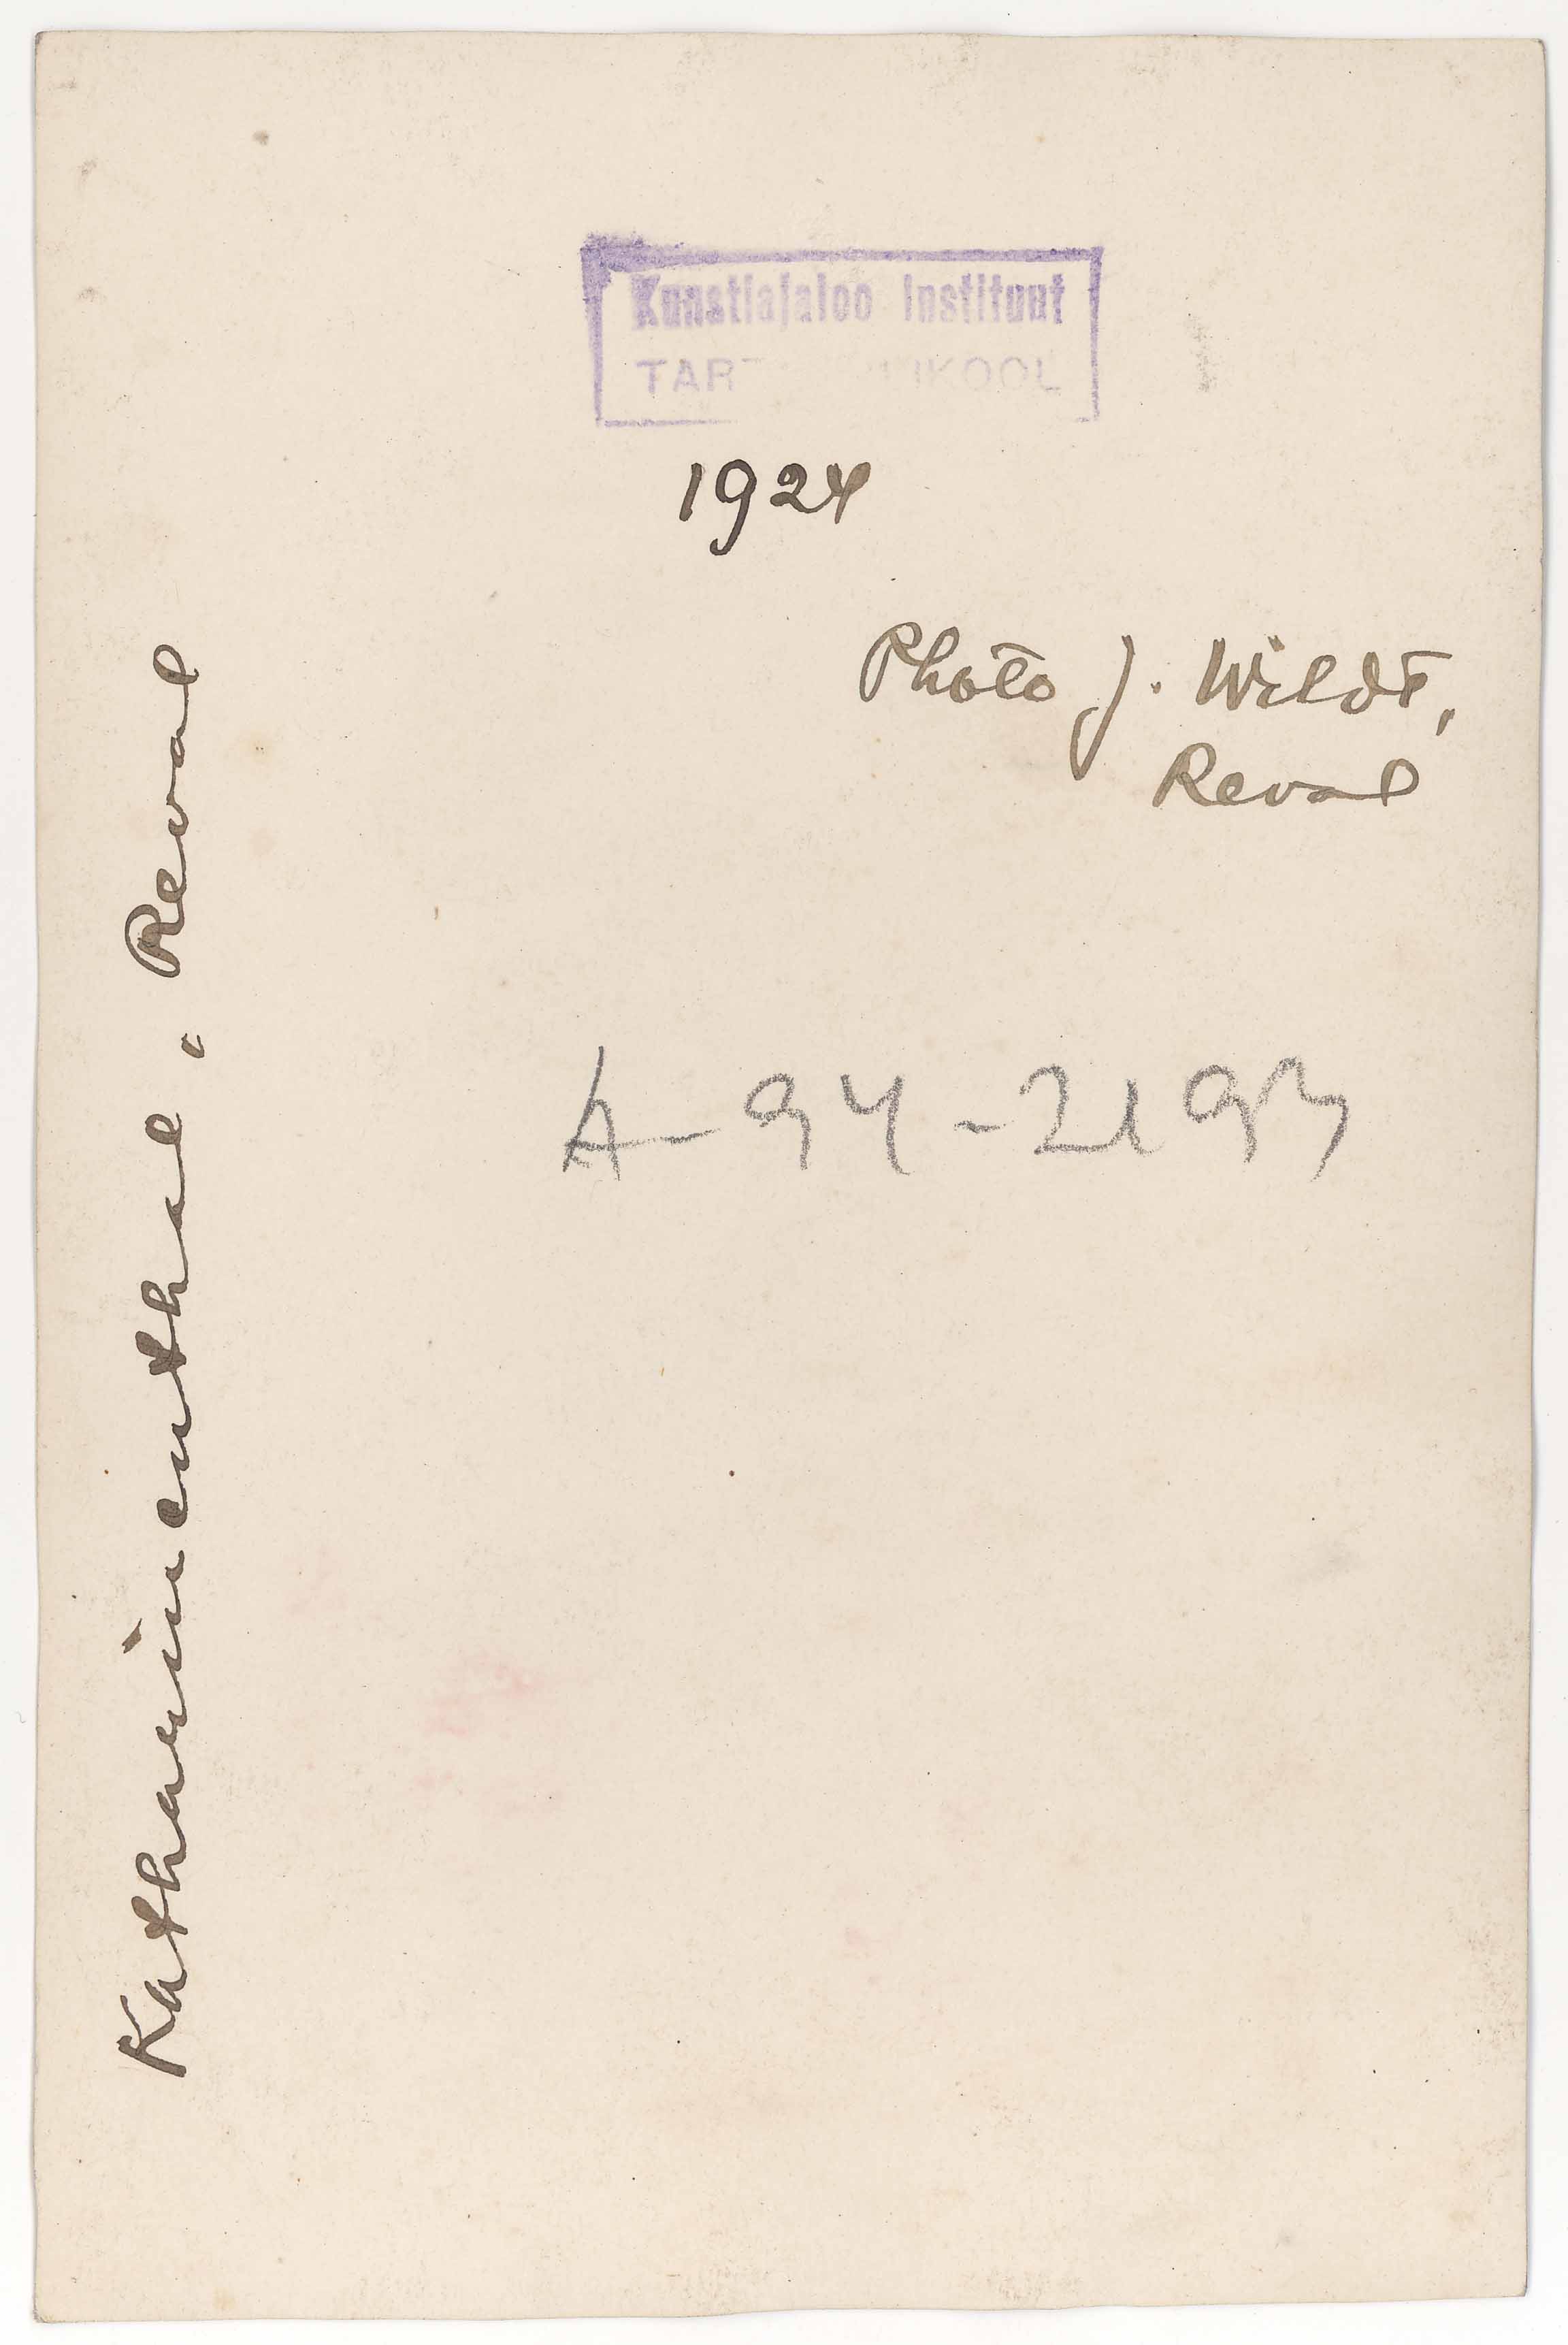 Kunstiajaloo Instituut
1924
Photo J. Wildt,
Reval
A-94-2193
Katharinenthal, Reval